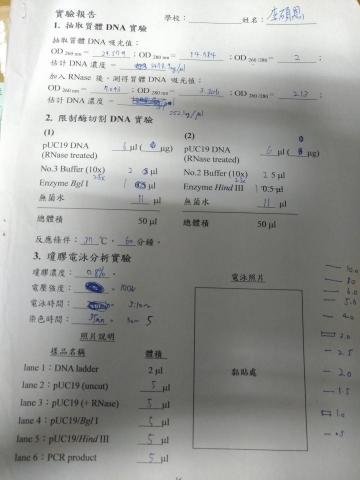 實驗報告
學校: 姓名:
1. 抽取質體 DNA 實驗
抽取質體 DNA 吸光值:
OD 260 nm = ; OD 280 nm = 14.584 ; OD 260 /280 = 2 ;
估計 DNA 濃度 = μg/μl
加入 RNase 後,測得質體 DNA 吸光值:
OD 260 nm = ; OD 280 nm = ; OD 260 /280 = 2.13 ;
估計 DNA 濃度 = μg/μl
2. 限制酶切割 DNA 實驗
(1) (2)
pUC19 DNA 6 μl ( μg) pUC19 DNA 6 μl ( μg)
(RNase treated) (RNase treated)
No.3 Buffer (10x) 2 5 μl No.2 Buffer (10x) 2 5 μl
Enzyme Bgl I 1 0.5 μl Enzyme Hind III 1 0.5 μl
無菌水 11 μl 無菌水 11 μl
總體積 50 μl 總體積 50 μl
反應條件: 37 ℃, 60 分鐘。
3. 瓊膠電泳分析實驗
瓊膠濃度: 0.8% 。
電壓強度: 100V
電泳時間:
染色時間: 5
照片說明
樣品名稱 體積
lane 1:DNA ladder 2 μl
lane 2:pUC19 (uncut) 5 μl
lane 3:pUC19 (+ RNase) 5 μl
lane 4:pUC19/Bgl I 5 μl
lane 5:pUC19/Hind III 5 μl
lane 6:PCR product 5 μl
電泳照片
黏貼處
10.0
8.0
6.0
5.0
4.0
3.0
2.5
2.0
1.5
1.0
0.5